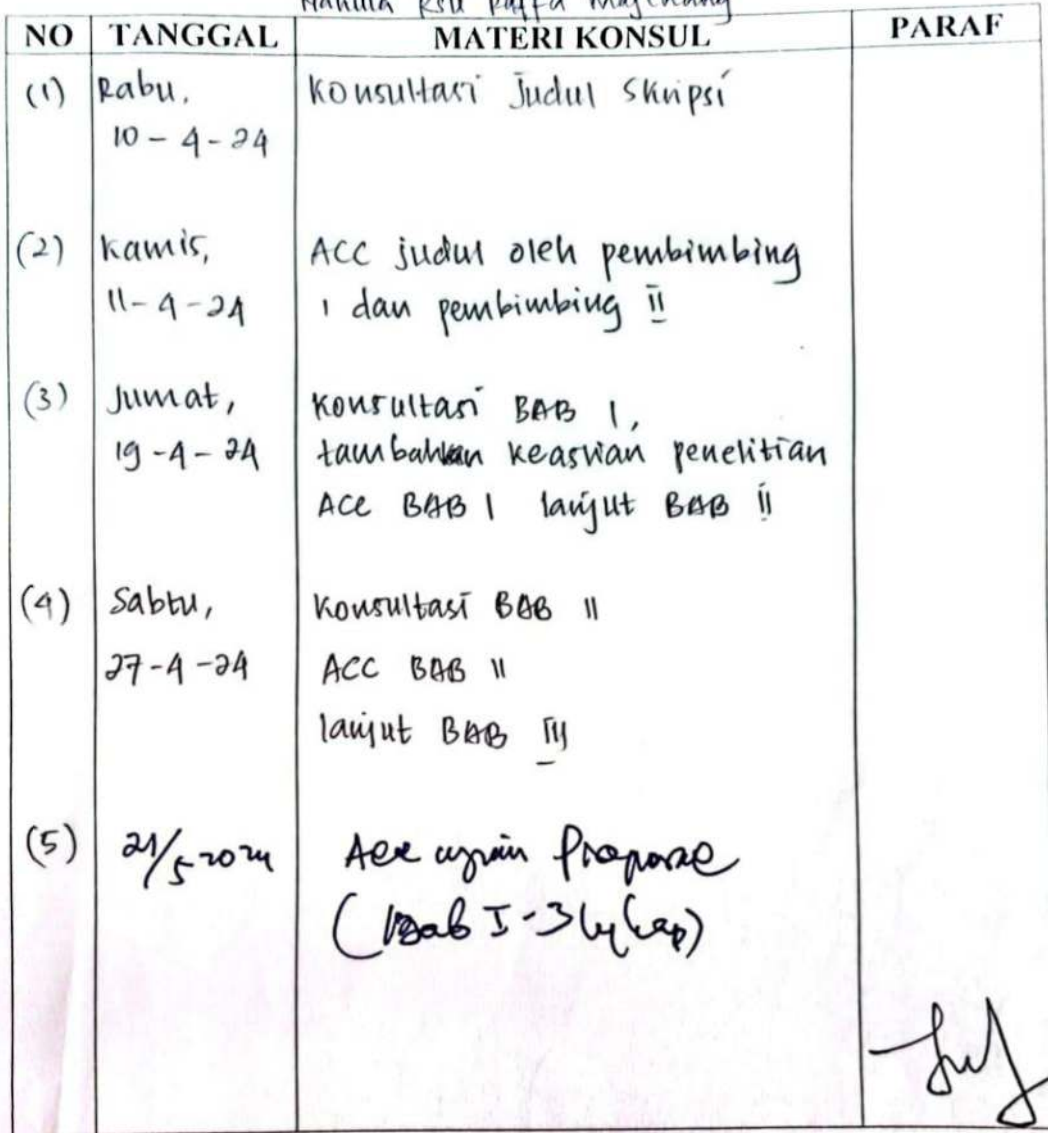 RSU Raffa Majenang
NO TANGGAL MATERI KONSUL PARAF
(1) Rabu, Konsultasi Judul Skripsi
10-4-24
(2) Kamis, ACC judul oleh pembimbing
11-4-24 I dan pembimbing II
(3) Jumat, Konsultasi BAB I,
19-4-24 tambahkan keaslian penelitian
ACC BAB I lanjut BAB II
(4) Sabtu, Konsultasi BAB II
27-4-24 ACC BAB II
lanjut BAB III
(5) 21/5 2024 Acc ujian Proposal
(Bab I-3 lengkap)